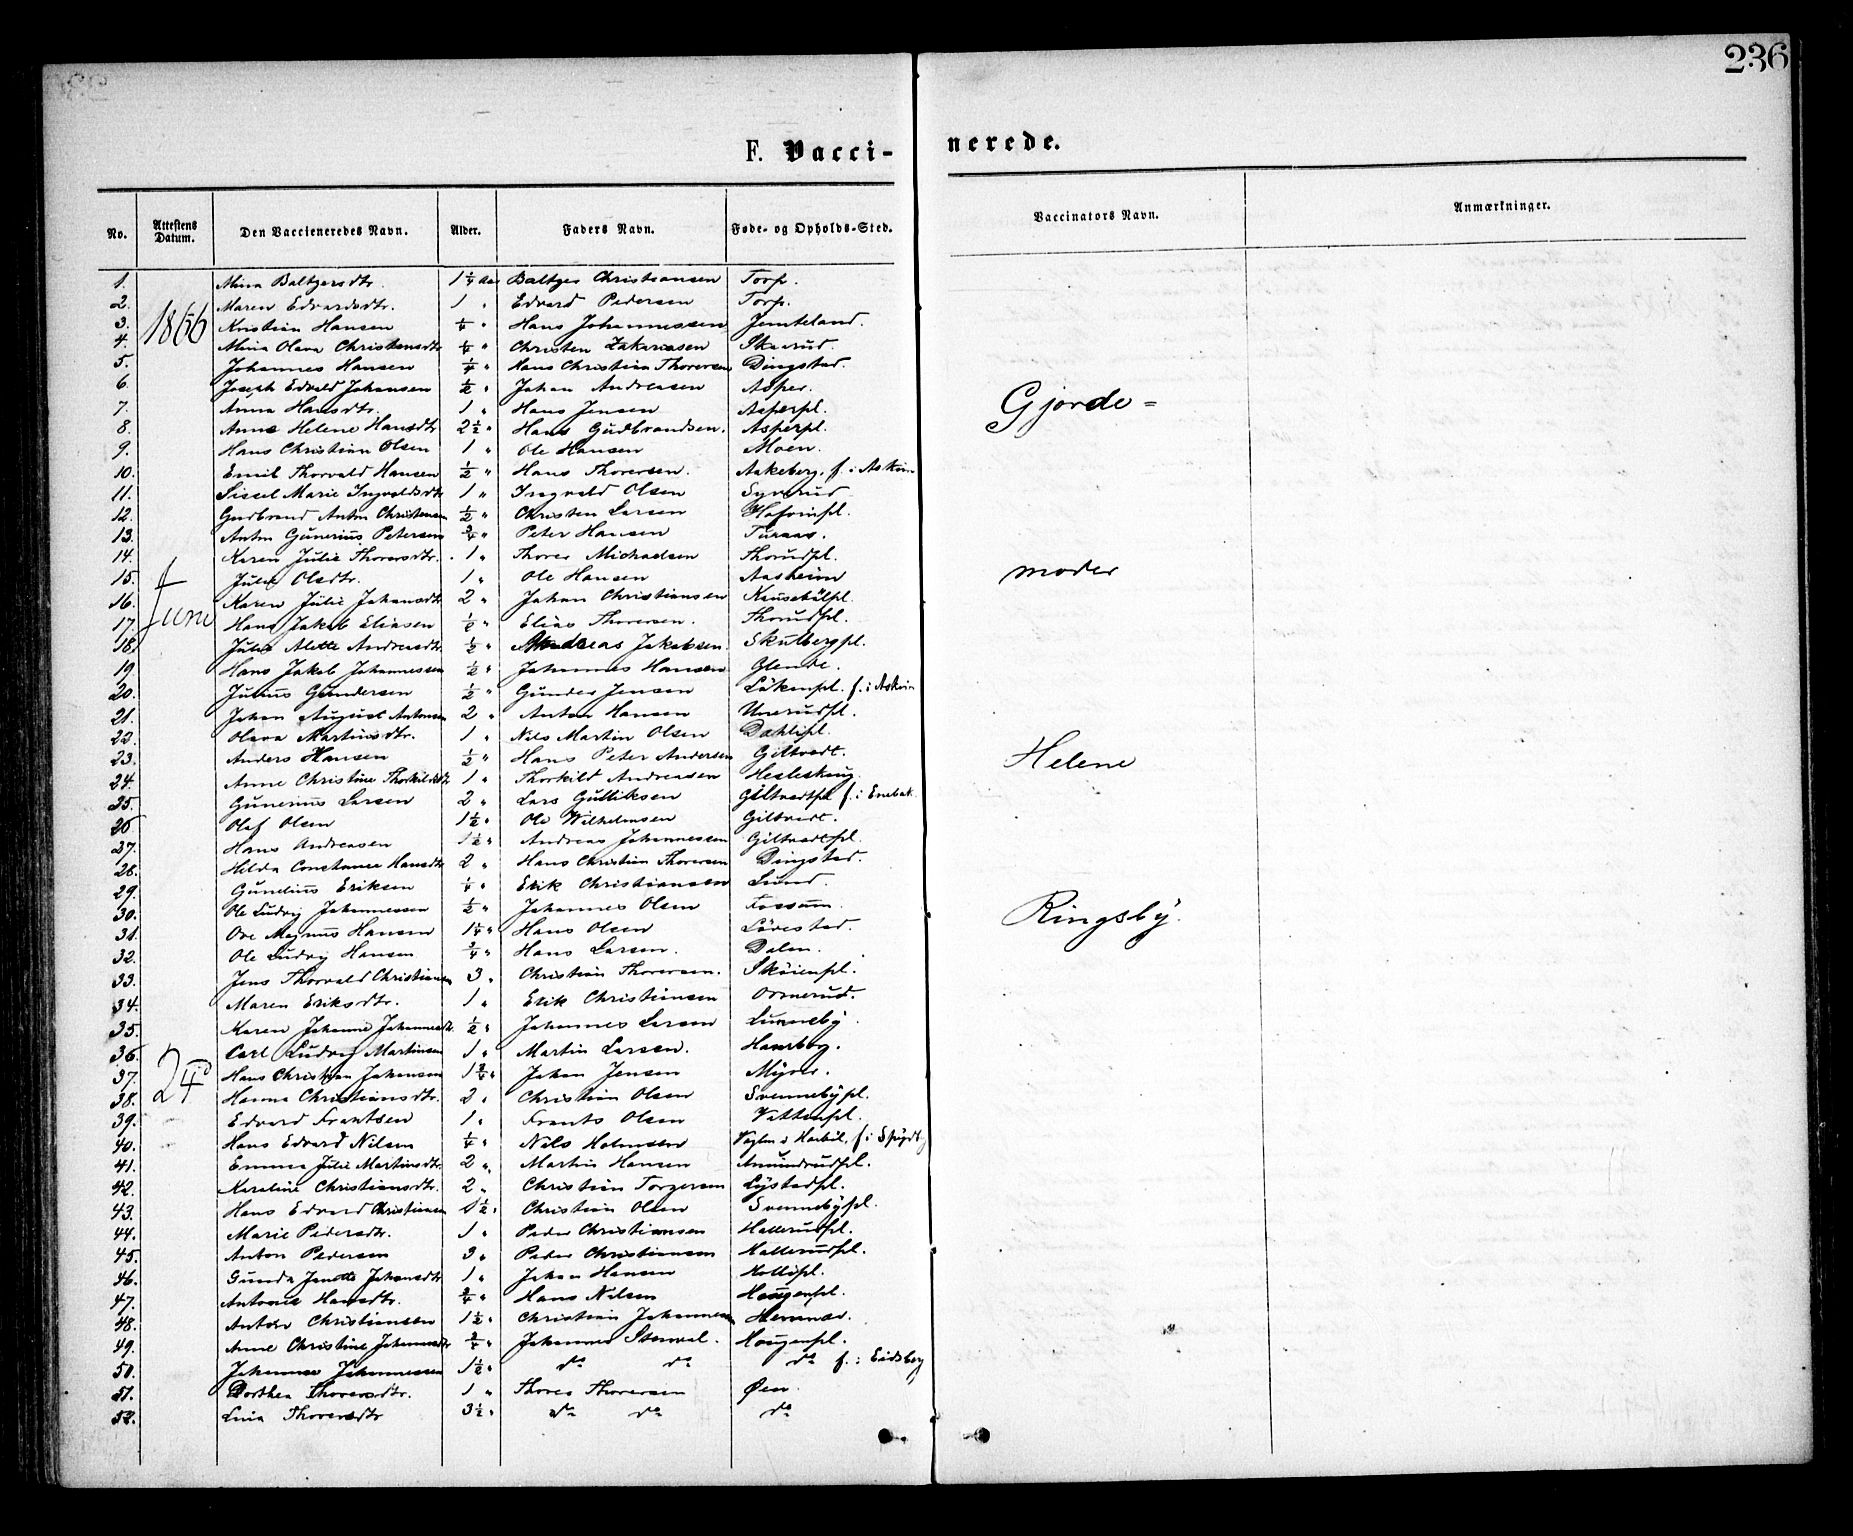 236
F. Vacci-nerede.
No. Attestens Datum. Den Vaccieneredes Navn. Alder. Faders Navn. Føde- og Opholds-Sted. Vaccinators Navn. Anmærkninger.
1. Mina Baltzersdtr. 1¼ Aar Baltzer Christiansen Torp.
2. Maren Edvardsdtr. 1 " Edvard Pedersen Torp.
1866
3. Kristian Hansen ¼ " Hans Johannessen Jemteland.
4. Mina Olava Christensdtr ¼ " Christen Zakariasen Skaarud.
5. Johannes Hansen ¼ " Hans Christian Thoresen Dingstad.
6. Joseph Edvald Johansen ½ " Johan Andreasen Asper.
7. Anna Hansdtr. 1 " Hans Jensen Asperpl.
Gjorde=
8. Anne Helene Hansdtr 2½ " Hans Gudbrandsen. Asperpl.
9. Hans Christian Olsen 1 " Ole Hansen Moen.
10. Emil Thorvald Hansen ½ " Hans Thoresen. Aakeberg, f. i Askim
11. Sissel Marie Ingvaldsdtr 1 " Ingvald Olsen Syverud
12. Gudbrand Anton Christensen ½ " Christen Larsen Hafvinpl.
13. Anton Gunerius Petersen ¾ " Peter Hansen
14. Karen Julie Thoresdtr. 1 " Thores Michaelsen Thorudpl.
15. Julie Olsdtr. 1 " Ole Hansen Aasheim
moder
16. Karen Julie Johansdtr 2 " Johan Christiansen
Juni
17. Hans Jakob Eliasen ½ " Elias Thoresen. Thorudpl.
18. Julie Alette Andreasdtr. ½ " Andreas Jakobsen. Skulbergpl.
19. Hans Jakob Johannessen ½ " Johannes Hansen Glende.
20. Julius Gundersen ½ " Gunder Jensen Løkenpl. f. i Askim
21. Johan August Antonsen 2 " Anton Hansen Unerudpl.
22. Olava Martinsdtr. 1 " Nils Martin Olsen Dahlspl.
23. Anders Hansen ½ " Hans Peter Andersen Giltvedt.
Helene
24. Anne Christine Thorkildsdtr 1 " Thorkild Andreasen
25. Gunerius Larsen 2 " Lars Gulliksen Giltvedtpl f. i Enebak.
26 Olaf Olsen 1½ " Ole Wilhelmsen Giltvedt.
27. Hans Andreasen 1½ " Andreas Johannessen Giltvedtpl.
28. Hilda Constance Hansdtr 2 " Hans Christian Thoresen Dingstad.
29. Gundius Eriksen ¼ " Erik Christiansen Lund.
30. Ole Ludvig Johannessen ½ " Johannes Olsen Fossum.
Ringsby.
31. Ove Magnus Hansen 1¼ " Hans Olsen Løvestad.
32. Ole Ludvig Hansen ¾ " Hans Larsen. Dalen.
33. Jens Thorvald Christiansen 3 " Christian Thoresen. Skøienpl.
34. Maren Eriksdtr. 1 " Erik Christiansen Ormerud.
35. Karen Johanne Johannesdtr. ½ " Johannes Larsen Lunneby.
36. Carl Ludvig Martinsen 1 " Martin Larsen. Haneborg.
24d
37. Hans Christian Johansen 1¾ " Johan Jensen Myrer.
38. Hanna Christiansdtr. 2 " Christian Olsen Svennebypl.
39. Edvard Frantsen 1 " Frants Olsen Vattenpl.
40. Hans Edvard Nilsen ¼ " Nils Holmsen f. i Spydb
41. Emma Julie Martinsdtr. 2 " Martin Hansen Amundrudpl.
42. Karoline Christiansdtr. 2 " Christian Torgersen Lystadpl.
43. Hans Edvard Christiansen 1½ " Christian Olsen Svennebypl.
44. Marie Pedersdtr. 1 " Peder Christiansen Hallerudpl.
45. Anton Pedersen 3 " Peder Christiansen Hallerudpl.
46. Gunda Janette Johansdtr 1 " Johan Hansen Hollipl.
47. Antonie Hansdtr. ¾ " Hans Nilsen Hougenpl.
48. Anton Christiansen 1½ " Christian Johannesen
49. Anne Christine Johannesdtr ¾ " Johannes Stenval. Hougenpl.
50. Johannes Johannessen 1½ " do do do f. i Eidsberg
51. Dorthea Thoresdtr. 1 " Thores Thoresen Øen.
52. Lina Thoresdtr 3½ " do do do